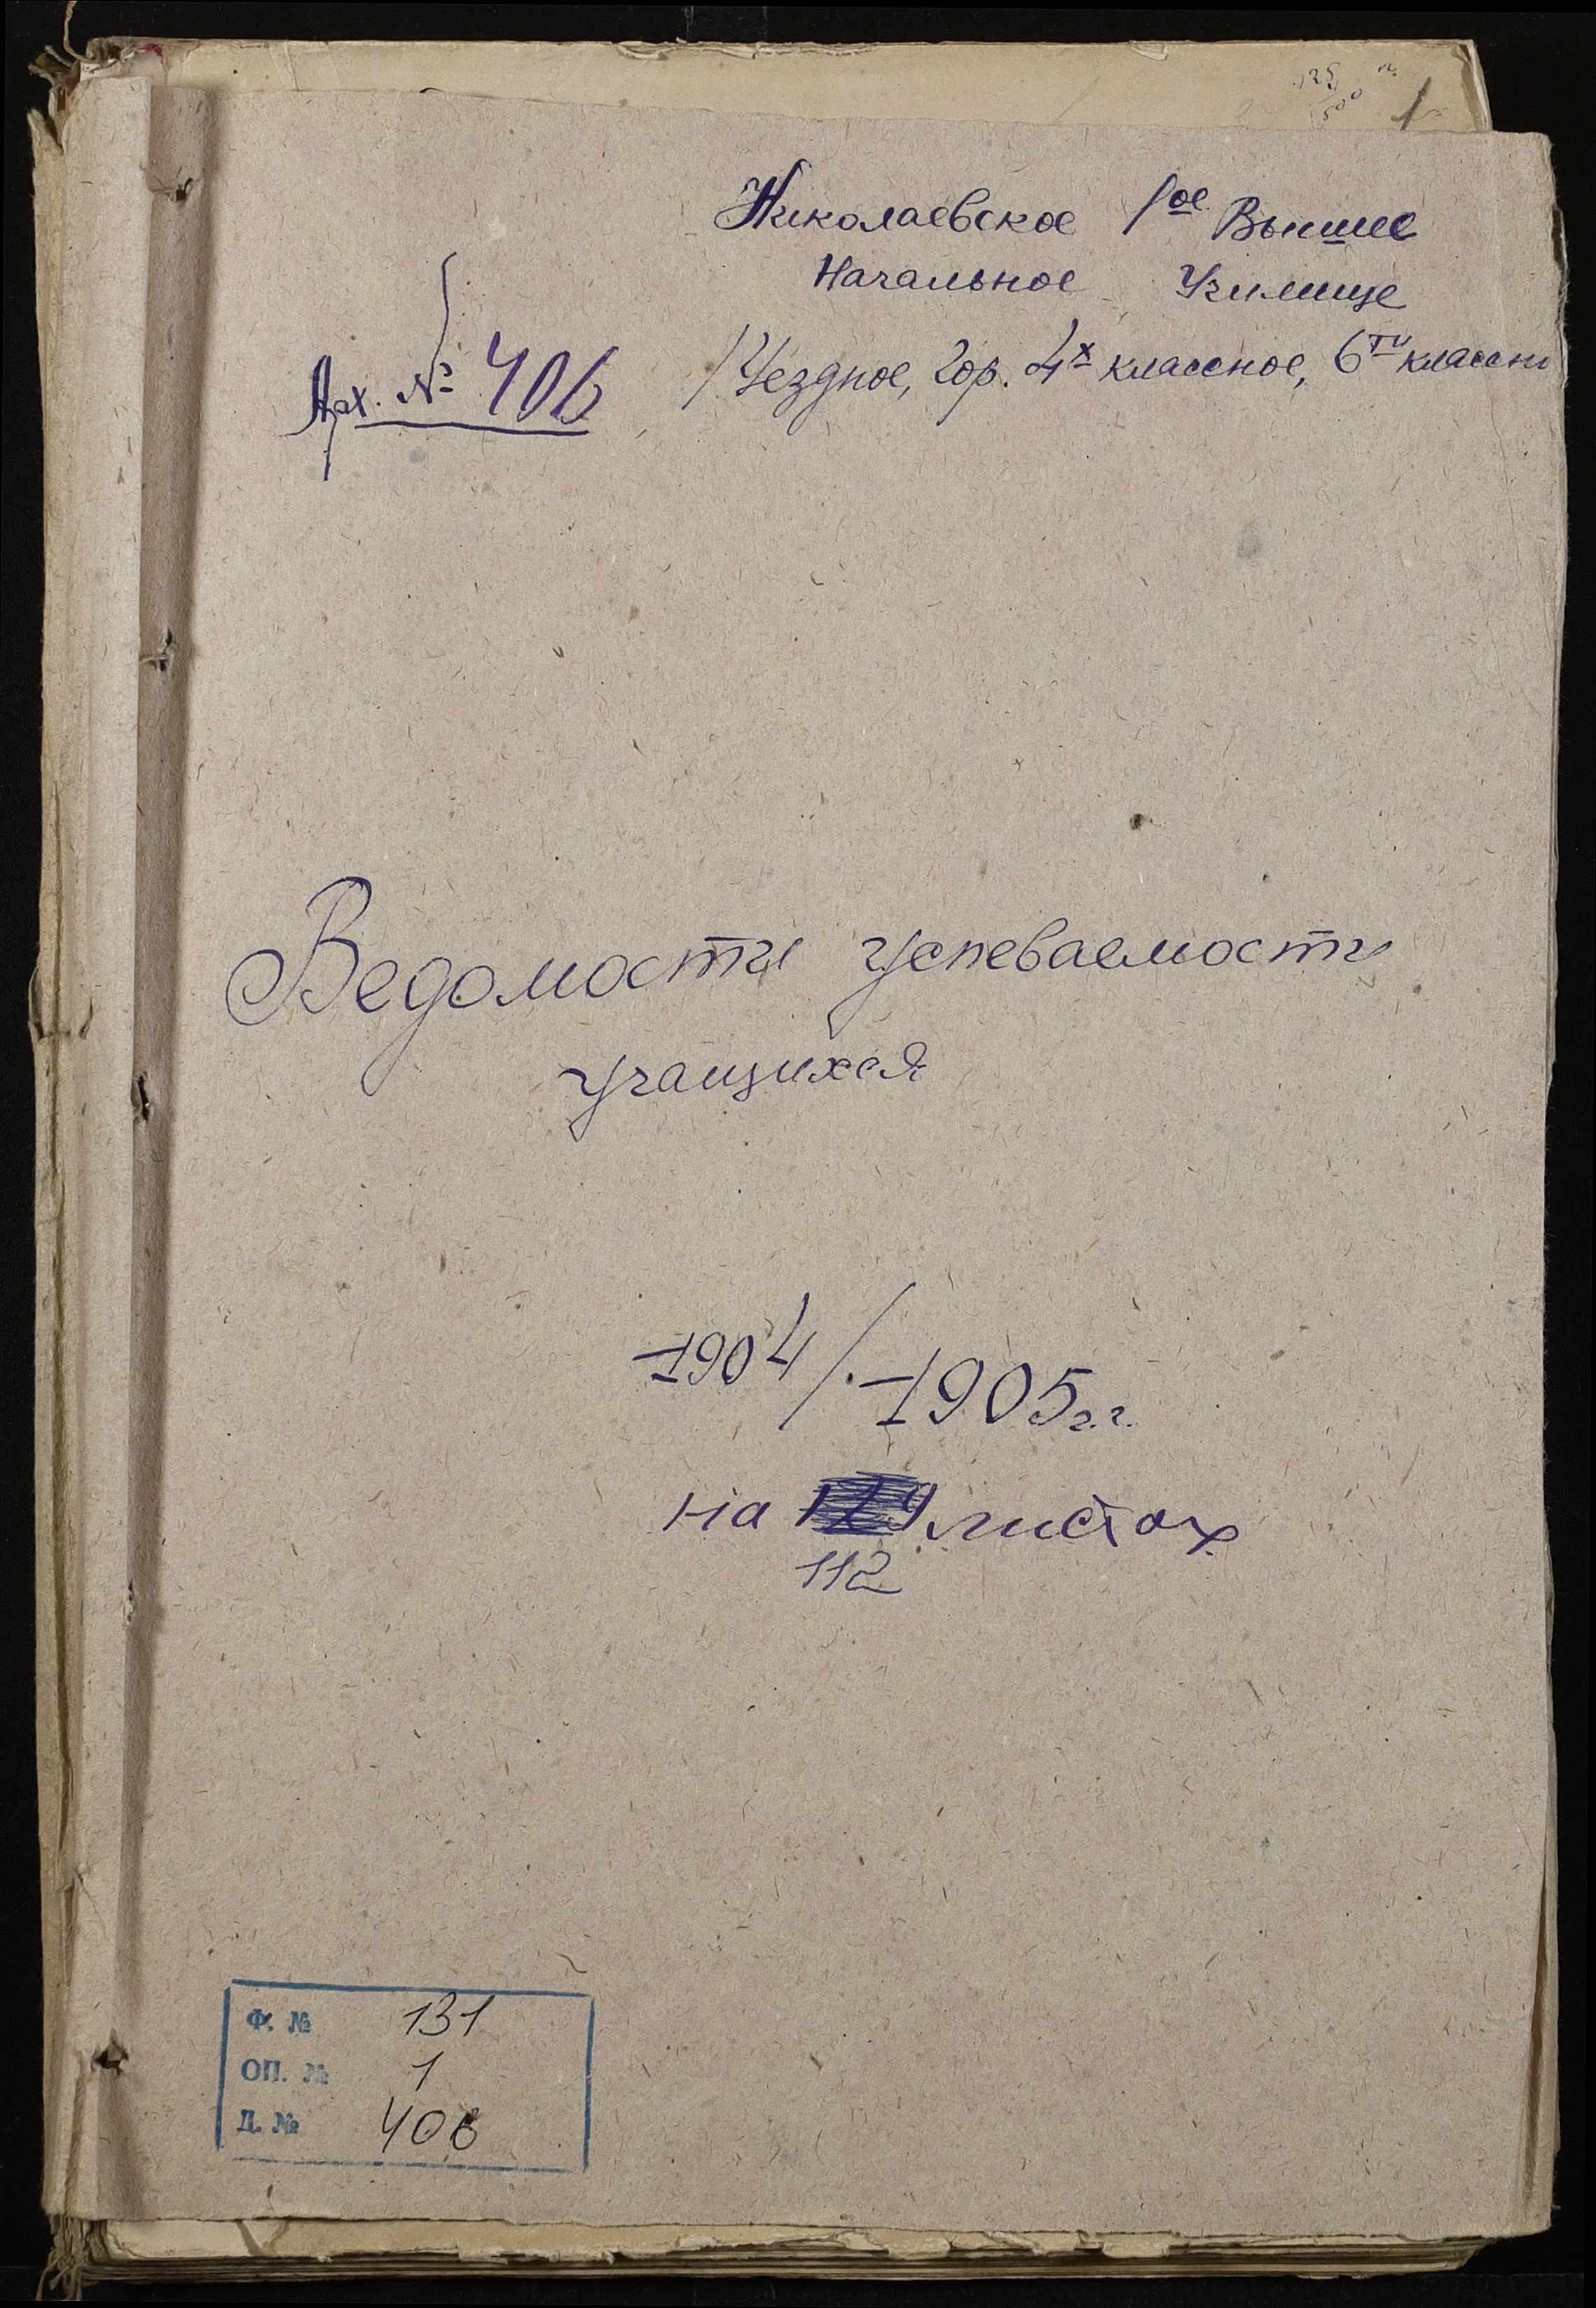 Николаевское 1ое Высшее
Начальное Училище
Арх. № 406
/Уездное, Гор. 4х классное, 6ти классно
Ведомости успеваемости
учащихся
1904/1905 г.г.
на листах
112
Ф. № 131
ОП. № 1
Д. № 406